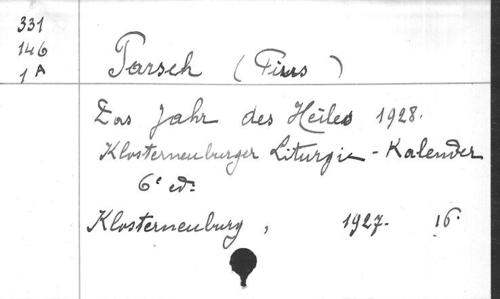 331
146
1 A
Parsch (Pius)
Das Jahr des Heiles 1928.
Klosterneuburger Liturgie - Kalender
6e ed:
Klosterneuburg, 1927. 16°